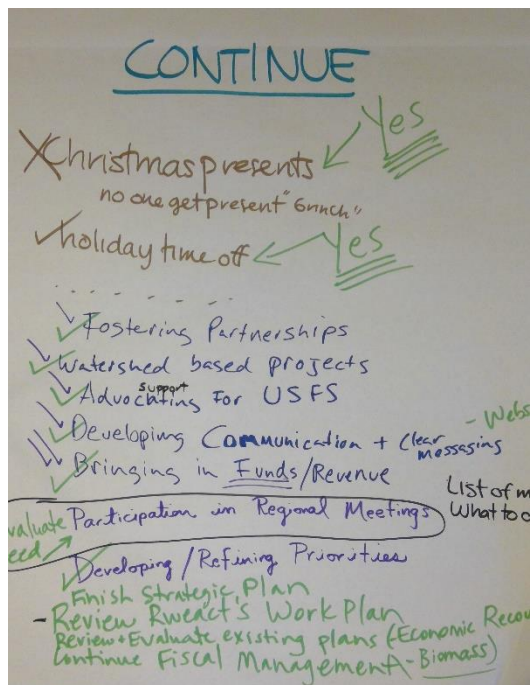 CONTINUE
Yes
Christmas presents
no one get present "Grinch"
holiday time off
Yes
Fostering Partnerships
Watershed based projects
support
Advocating For USFS
Developing Communication + Clear messaging
- Webs
Bringing in Funds/Revenue
List of m
What to d
Participation in Regional Meetings
evaluate
need
Developing/Refining Priorities
Finish Strategic Plan
- Review Rweact's Work Plan
Review + Evaluate existing plans (Economic Recov
Continue Fiscal Management - Biomass)